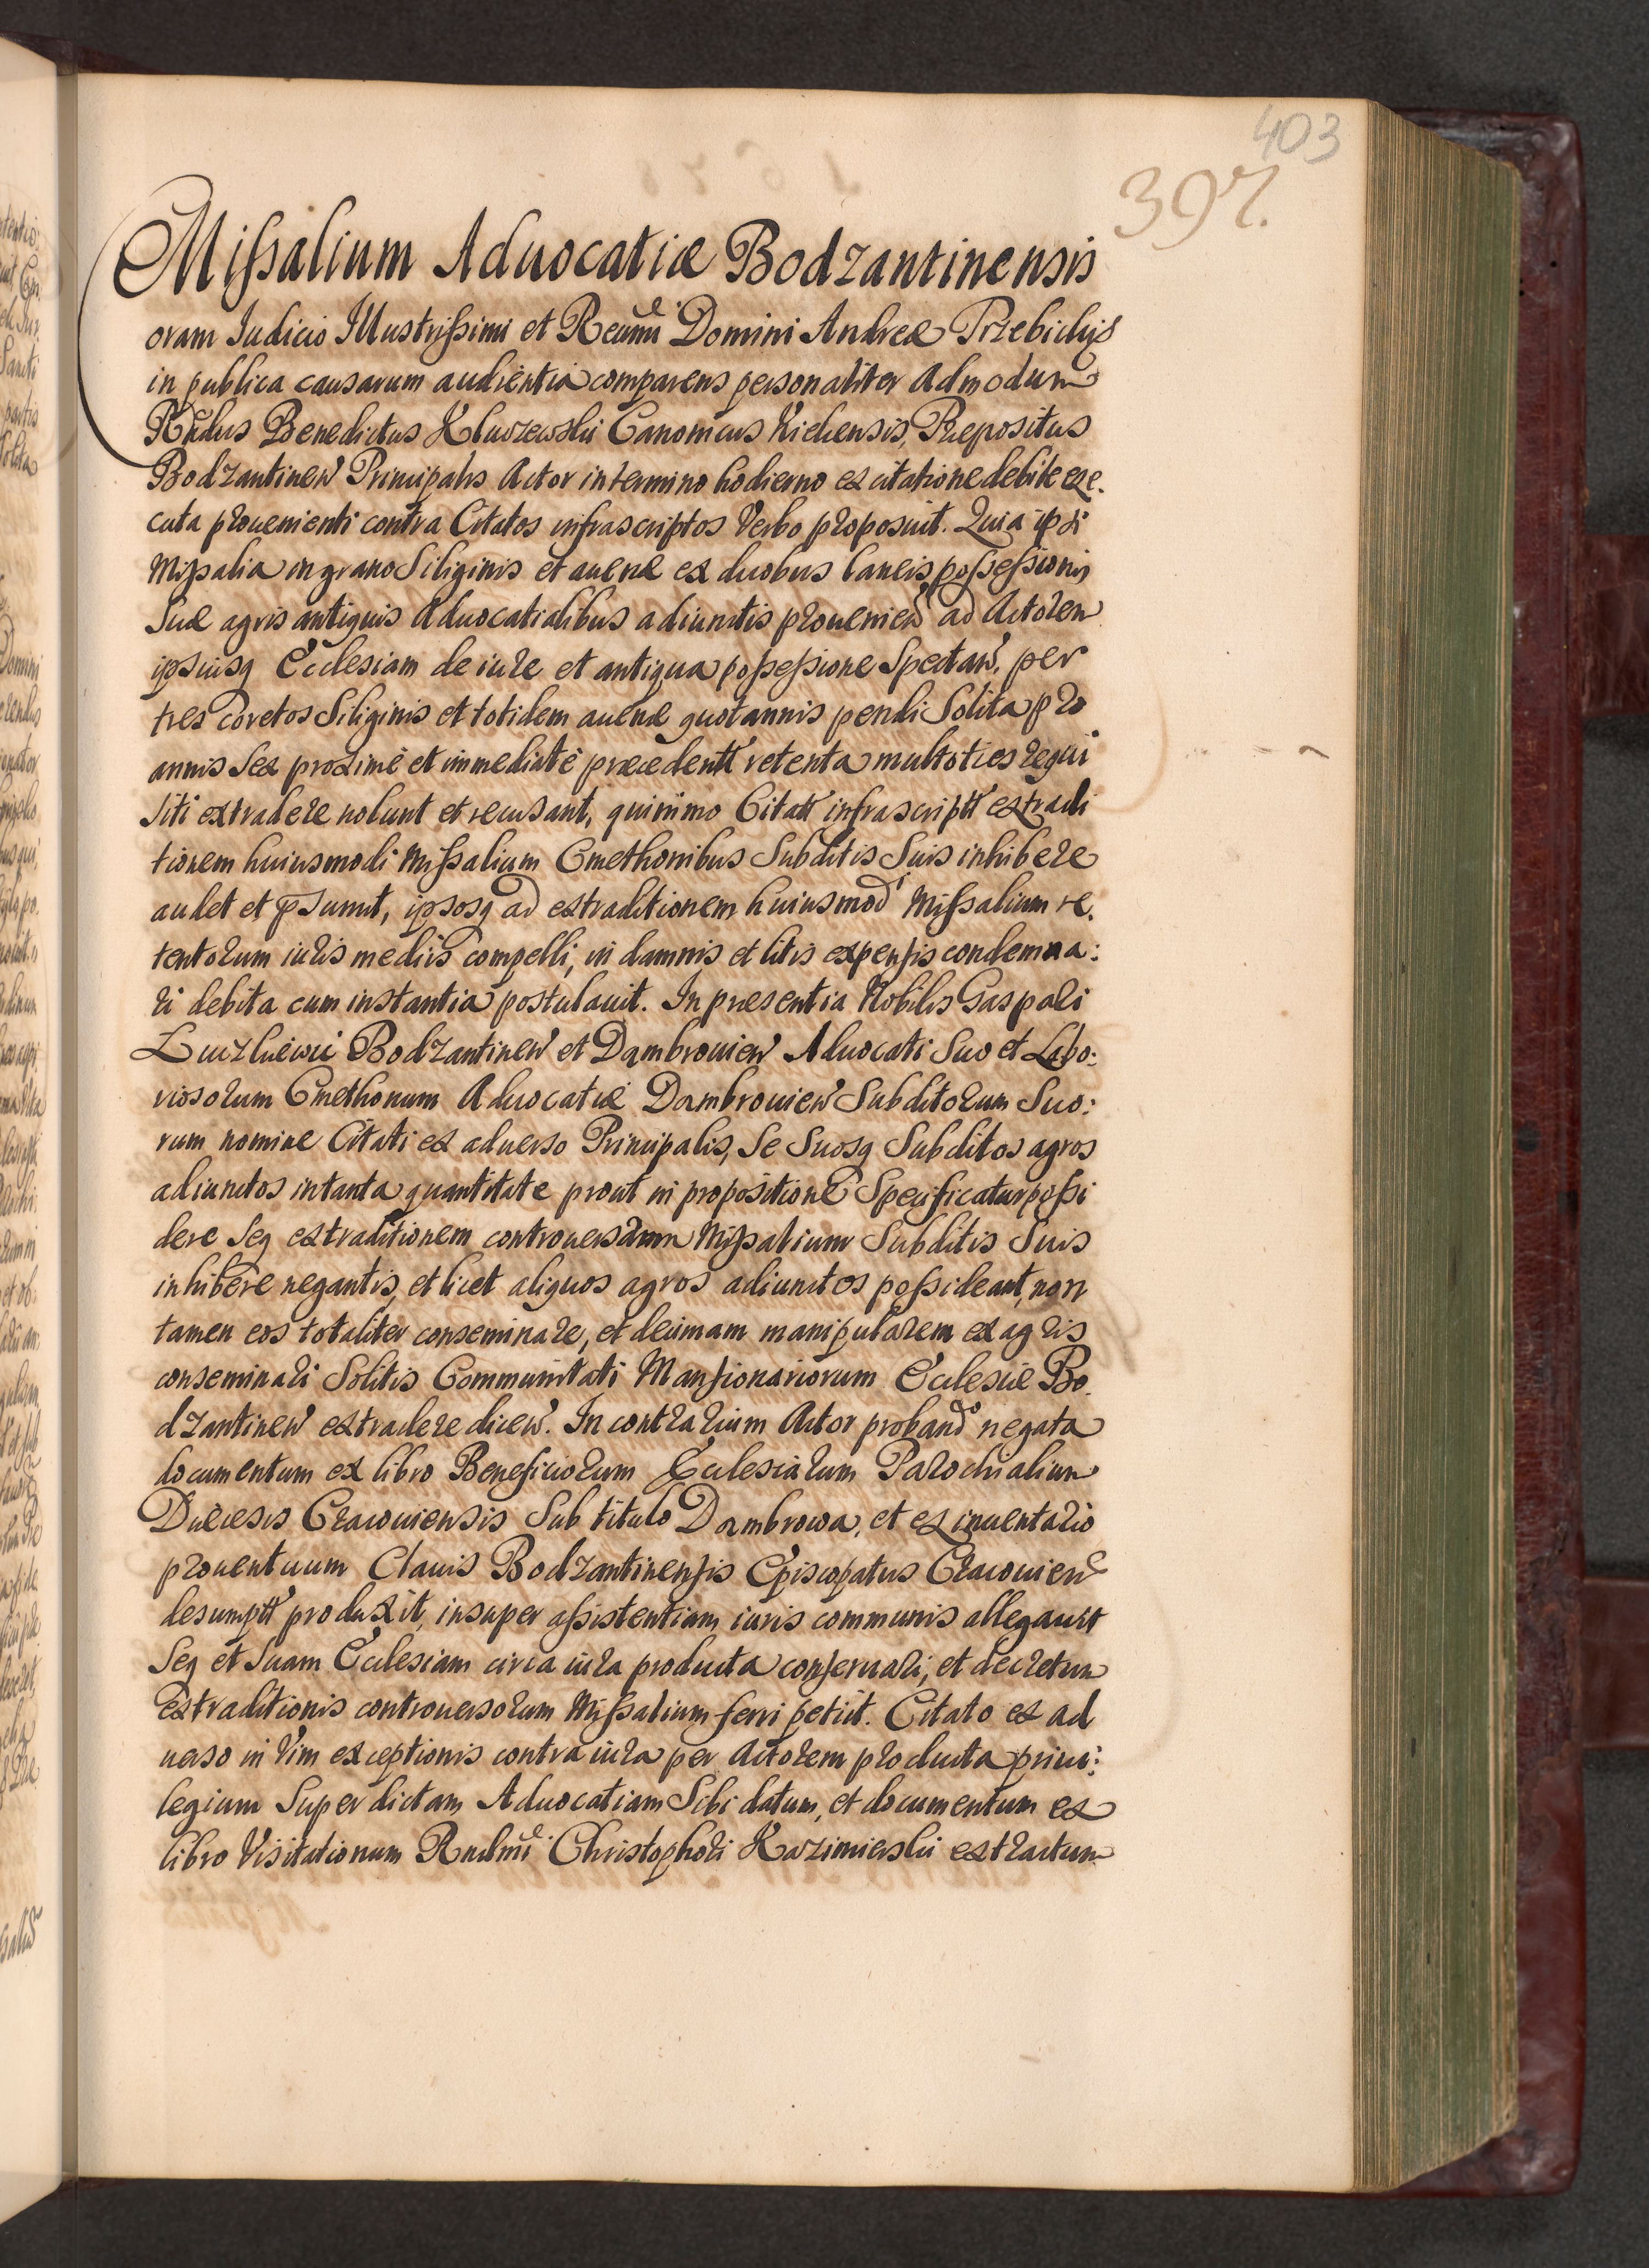 403
397.
Missalium Aduocatiæ Bodzantinensis
Coram Iudicio Illustrissimi et Reumi Domini Andreæ Trzebickij
in publica causarum audientia comparens personaliter Admodum
Rndus Benedictus Kluczewski Canonicus Kielcensis, Præpositus
Bodzantinen Principalis Actor in termino hodierno ex citatione debite exe.
cuta prouenienti contra Citatos infrascriptos Verbo proposuit. Quia ipsi
Missalia in grano Siliginis et auenæ ex duobus laneis possessionis
Suæ agris antiquis Aduocatialibus adiunctis prouenien ad Actorem
ipsiusq Ecclesiam de iure et antiqua possessione Spectan. per
tres coretos Siliginis et totidem auenæ quotannis pendi Solita pro
annis Sex proximè et immediatè præcedentt retenta multoties requi
siti extradere nolunt et recusant, quinimo Citatt infrascriptt extradi
tionem huiusmodi Missalium Cmethonibus Subditis Suis inhibere
audet et psumit, ipsosq ad extraditionem huiusmod Missalium re.
tentorum iuris mediis compelli, in damnis et litis expensis condemna:
ri debita cum instantia postulauit. In præsentia Nobilis Gaspari
Bodzantinen et Dambrouien Aduocati Suo et Labo:
riosorum Cmethonum Aduocatiæ Dambrouien Subditorum Suo:
rum nomine Citati ex aduerso Principalis, Se Suosq Subditos agros
adiunctos in tanta quantitate prout in propositione Specificatur possi
dere Seq extraditionem controuersorum Missalium Subditis Suis
inhibere negantis, et licet aliquos agros adiunctos possideant, non
tamen eos totaliter conseminare, et decimam manipularem ex agris
conseminari Solitis Communitati Mansionariorum Ecclesiæ Bo
dzantinen extradere dicen. In contrarium Actor proband negata
documentum ex libro Beneficiorum Ecclesiarum Parochialium
Diæcesis Cracouiensis Sub titulo Dambrowa, et ex inuentario
prouentuum Clauis Bodzantinensis Episcopatus Cracouien
desumptt produxit, insuper assistentiam iuris communis allegauit
Seq et Suam Ecclesiam circa iura producta conseruari, et decretum
extraditionis controuersorum Missalium ferri petiit. Citato ex ad
uerso in Vim exceptionis contra iura per Actorem producta priui:
legium Super dictam Aduocatiam Sibi datum, et documentum ex
libro Visitationum Rndmi Christophori Kazimierski extractum